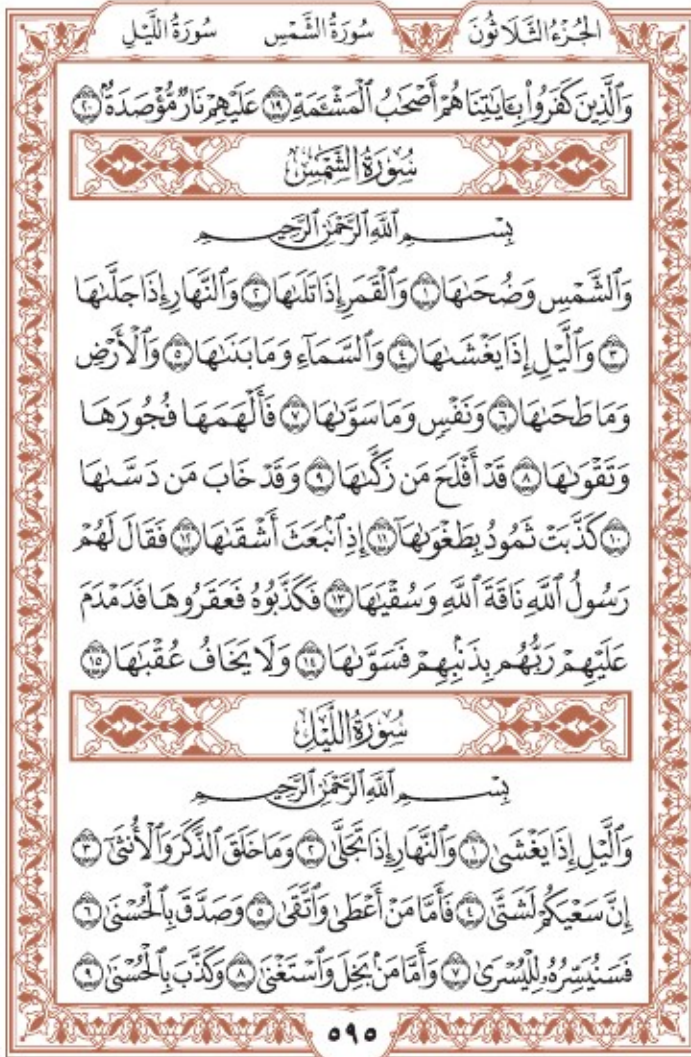 الجُزْءُ الثَّلَاثُونَ سُورَةُ الشَّمْسِ سُورَةُ اللَّيْلِ
وَٱلَّذِينَ كَفَرُواْ بِـَٔايَٰتِنَا هُمْ أَصْحَٰبُ ٱلْمَشْـَٔمَةِ ١٩ عَلَيْهِمْ نَارٌ مُّؤْصَدَةُۢ ٢٠
سُورَةُ الشَّمْسِ
بِسْمِ ٱللَّهِ ٱلرَّحْمَٰنِ ٱلرَّحِيمِ
وَٱلشَّمْسِ وَضُحَىٰهَا ١ وَٱلْقَمَرِ إِذَا تَلَىٰهَا ٢ وَٱلنَّهَارِ إِذَا جَلَّىٰهَا
٣ وَٱلَّيْلِ إِذَا يَغْشَىٰهَا ٤ وَٱلسَّمَآءِ وَمَا بَنَىٰهَا ٥ وَٱلْأَرْضِ
وَمَا طَحَىٰهَا ٦ وَنَفْسٍ وَمَا سَوَّىٰهَا ٧ فَأَلْهَمَهَا فُجُورَهَا
وَتَقْوَىٰهَا ٨ قَدْ أَفْلَحَ مَن زَكَّىٰهَا ٩ وَقَدْ خَابَ مَن دَسَّىٰهَا
١٠ كَذَّبَتْ ثَمُودُ بِطَغْوَىٰهَآ ١١ إِذِ ٱنۢبَعَثَ أَشْقَىٰهَا ١٢ فَقَالَ لَهُمْ
رَسُولُ ٱللَّهِ نَاقَةَ ٱللَّهِ وَسُقْيَٰهَا ١٣ فَكَذَّبُوهُ فَعَقَرُوهَا فَدَمْدَمَ
عَلَيْهِمْ رَبُّهُم بِذَنۢبِهِمْ فَسَوَّىٰهَا ١٤ وَلَا يَخَافُ عُقْبَٰهَا ١٥
سُورَةُ اللَّيْلِ
بِسْمِ ٱللَّهِ ٱلرَّحْمَٰنِ ٱلرَّحِيمِ
وَٱلَّيْلِ إِذَا يَغْشَىٰ ١ وَٱلنَّهَارِ إِذَا تَجَلَّىٰ ٢ وَمَا خَلَقَ ٱلذَّكَرَ وَٱلْأُنثَىٰٓ ٣
إِنَّ سَعْيَكُمْ لَشَتَّىٰ ٤ فَأَمَّا مَنْ أَعْطَىٰ وَٱتَّقَىٰ ٥ وَصَدَّقَ بِٱلْحُسْنَىٰ ٦
فَسَنُيَسِّرُهُۥ لِلْيُسْرَىٰ ٧ وَأَمَّا مَنۢ بَخِلَ وَٱسْتَغْنَىٰ ٨ وَكَذَّبَ بِٱلْحُسْنَىٰ ٩
٥٩٥